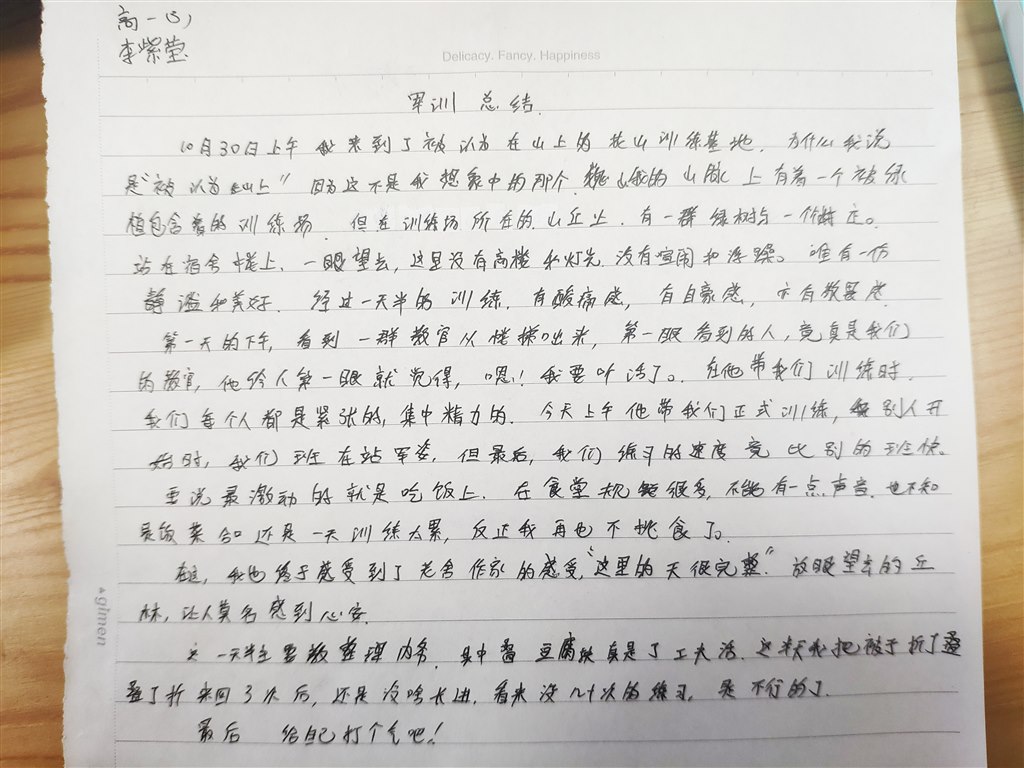 高一(5)
李紫莹
Delicacy. Fancy. Happiness
军训 总结.
10月30日上午 我来到了被认为在山上的花山训练基地. 为什么我说
是"被认为在山上" 因为这不是我想象中的那个. 巍峨的山脉上有着一个被绿
植包含着的训练场. 但在训练场所在的山丘上. 有一群绿树与一个
站在宿舍楼上. 一眼望去, 这里没有高楼和灯光. 没有喧闹和浮躁。唯有一份
静谧和美好. 经过一天半的训练. 有酸痛感, 有自豪感, 亦有敬畏感.
第一天的下午, 看到一群教官从楼梯口出来, 第一眼看到的人, 竟真是我们
的教官, 他给人第一眼就觉得, 嗯! 我要听话了。在他带我们训练时.
我们每个人都是紧张的, 集中精力的. 今天上午他带我们正式训练, 别人开
始时, 我们班在站军姿. 但最后, 我们练习的速度竟比别的班快.
要说最激动的就是吃饭上. 在食堂规矩很多, 不能有一点声音. 也不知
是饭菜合口还是一天训练太累, 反正我再也不挑食了。
在这, 我也终于感受到了老舍作家的感受, "这里的天很完整." 放眼望去的丘
林, 让人莫名感到心安.
这一天半主要教整理内务. 其中叠豆腐块真是了工夫活. 这半天我把被子折了叠
叠了折来回3次后, 还是没啥长进, 看来没几十次的练习, 是不行的了.
最后 给自己打个气吧!
glmen